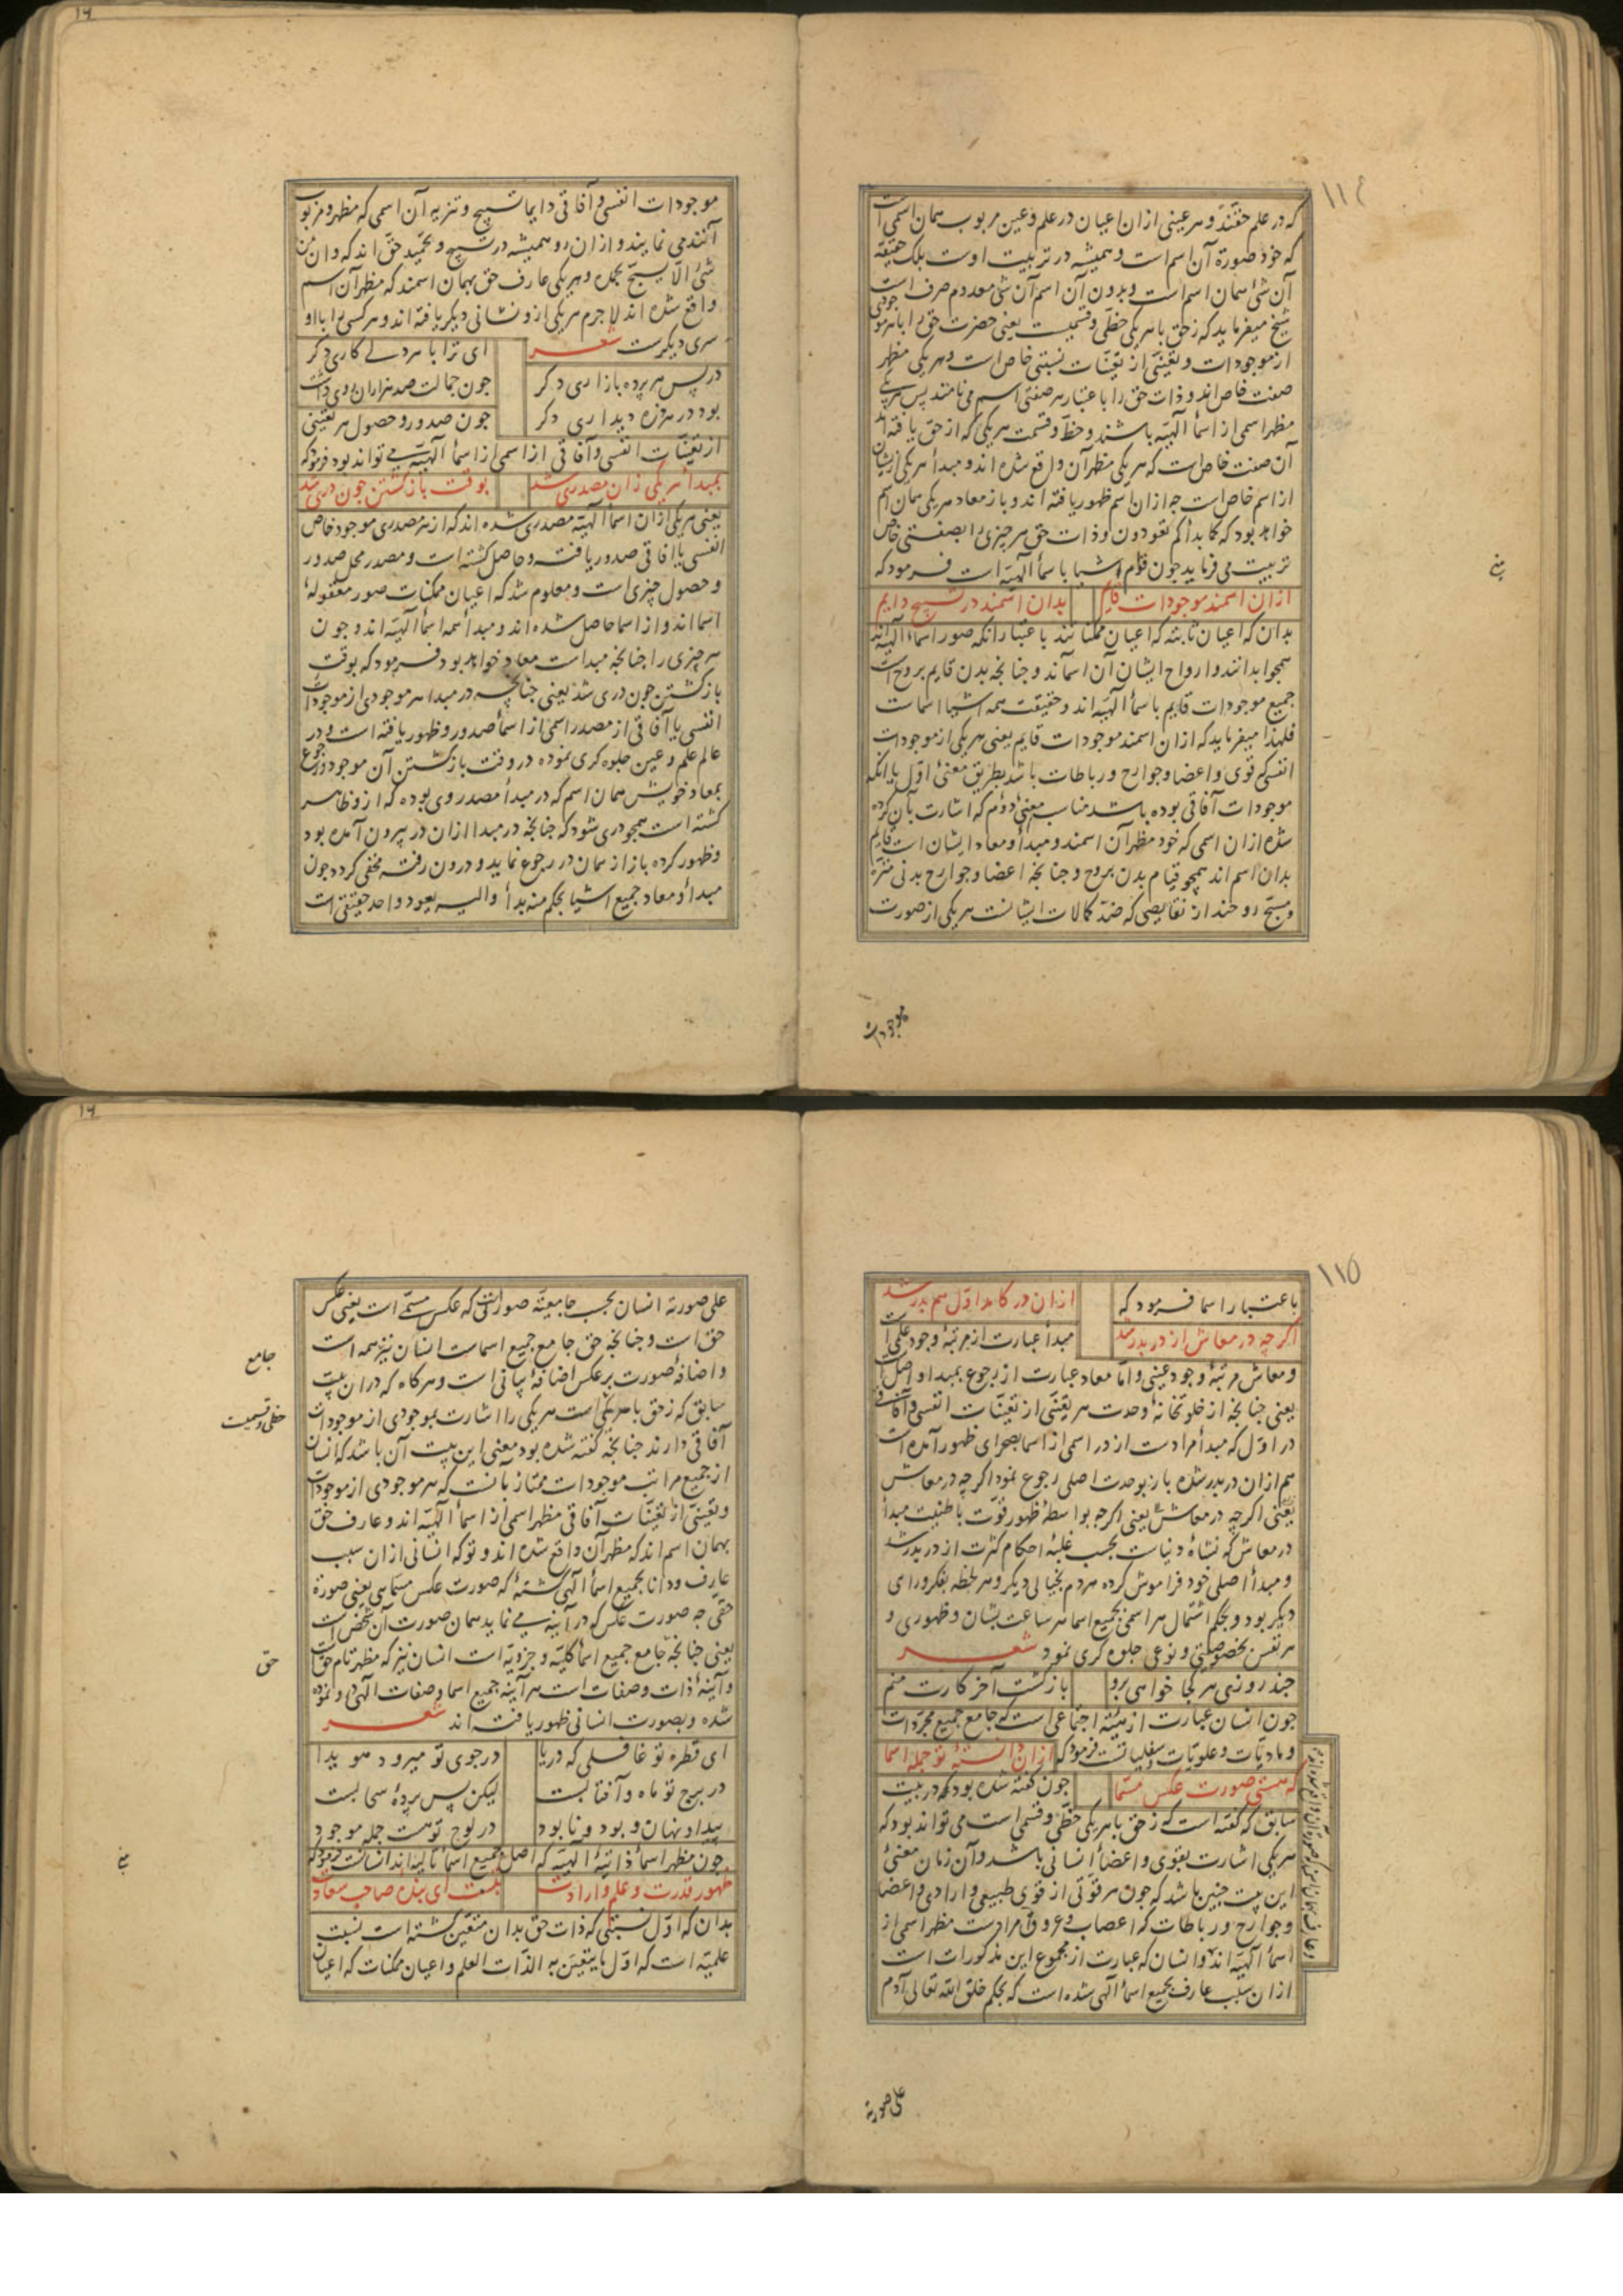 ۱۱٤
که در علم حقند و هر عینی ازان اعیان در علم و عین مربوب همان اسمی است
که خود صورة آن اسم است و همیشه در تربیت اوست بلک حقیقة
آن شئ همان اسم است و بدون آن اسم آن شئ معدوم صرف است
شیخ میفرماید که زحق با هر یکی حظی و قسمیست یعنی حضرت حق را با هر موجودی
از موجودات و تعینی از تعینات نسبتی خاص است و هر یکی مظهر
صفت خاص اند و ذات حق را باعتبار هر صفتی اسم می نامند پس هر یکی
مظهر اسمی از اسمأ آلهیه باشند و حظ و قسمت هر یکی که از حق یافته اند
آن صفت خاص است که هر یکی مظهر آن واقع شده اند و مبدأ هر یکی زیشان
از اسم خاص است چه ازان اسم ظهور یافته اند و باز معاد هر یکی همان اسم
خواهد بود که کما بدأکم تعودون و ذات حق هر چیزی را بصفتی خاص
تربیت می فرماید چون قوام اشیا باسمأ آلهیه است فرمود که
ازان اسمند موجودات قایم بدان اسمند در تسبیح دایم
بدان که اعیان ثابته که اعیان ممکناتند باعتبار انکه صور اسماء آلهیه اند
همچو ابدانند و ارواح ایشان آن اسماند و چنانچه بدن قایم بروح است
جمیع موجودات قایم باسمأ آلهیه اند و حقیقت همه اشیا اسماست
فلهذا میفرماید که ازان اسمند موجودات قایم یعنی هر یکی از موجودات
انفسی که قوی و اعضا و جوارح و رباطات باشد بطریق معنئ اول یا انکه
موجودات آفاقی بوده باشد مناسب معنئ دوم که اشارت بآن کرده
شده ازان اسمی که خود مظهر آن اسمند و مبدأ و معاد ایشان است قایم
بدان اسم اند همچو قیام بدن بروح و چنانچه اعضا و جوارح بدنی منزه
و مسبح روحند از نقایصی که ضد کمالات ایشانست هر یکی از صورت
موجودات
موجودات انفسی و آفاقی دایما تسبیح و تنزیه آن اسمی که مظهر و مربوب
آنند می نمایند و ازان رو همیشه در تسبیح و تحمید حق اند که و ان من
شئ الا یسبح بحمده و هر یکی عارف حق بهمان اسمند که مظهر آن اسم
واقع شده اند لاجرم هر یکی ازو نشانی دیگر یافته اند و هر کسی را با او
سری دیگرست شعر ای ترا با هر دلے کاری دگر
در پس هر پرده بازاری دگر چون جمالت صد هزاران روی داشت
بود در هر ذره دیداری دگر چون صدور و حصول هر تعینی
از تعینات انفسی و آفاقی از اسمی از اسمأ آلهیه می تواند بود فرمود که
بمبدأ هر یکی زان مصدری شد بوقت بازگشتن چون دری شد
یعنی هر یکی ازان اسمأ آلهیه مصدری شده اند که از هر مصدری موجود خاص
انفسی یا آفاقی صدور یافته و حاصل گشته است و مصدر محل صدور
و حصول چیزی است و معلوم شد که اعیان ممکنات صور معقولهٔ
اسما اند و از اسما حاصل شده اند و مبدأ همه اسمأ آلهیه اند و چون
هر چیزی را چنانچه مبداست معاد خواهد بود فرمود که بوقت
بازگشتن چون دری شد یعنی چنانچه در مبدا هر موجودی از موجودات
انفسی یا آفاقی از مصدر اسمی از اسمأ صدور و ظهور یافته است و در
عالم علم و عین جلوه گری نموده در وقت بازگشتن آن موجود و رجوع
بمعاد خویش همان اسم که در مبدأ مصدر وی بوده که ازو ظاهر
گشته است همچو دری شود که چنانچه در مبدا ازان در بیرون آمده بود
و ظهور کرده باز از همان در رجوع نماید و درون رفته مخفی گردد چون
مبدأ و معاد جمیع اشیا بحکم منه بدأ والیه یعود واحد حقیقی است
۱۱۵
باعتبار اسما فرمود که ازان در کامد اول هم بدر شد
اگرچه در معاش از در بدر شد مبدأ عبارت از مرتبهٔ وجود علمی است
و معاش مرتبهٔ وجود عینی و اما معاد عبارت از رجوع بمبدا و اصل است
یعنی چنانچه از خلوتخانهٔ وحدت هر تعینی از تعینات انفسی و آفاقی
در اول که مبدأ مرادست از در اسمی از اسما بصحرای ظهور آمده است
هم ازان در بدر شده باز بوحدت اصلی رجوع نمود اگرچه در معاش
یعنی اگرچه در معاش یعنی اگرچه بواسطهٔ ظهور قوت باطنیت مبدأ
در معاش که نشاهٔ دنیاست بحسب غلبهٔ احکام کثرت از در بدر شد
و مبدأ اصلی خود فراموش کرده هر دم بخیالی دیگر و هر لحظه بفکر و رای
دیگر بود و بحکم اشتمال هر اسمی بجمیع اسما هر ساعت بشان و ظهوری و
هر نفس بخصوصیتی و نوعی جلوه گری نمود شعر
چند روزی هر کجا خواهی برو بازگشت آخر کارت منم
چون انسان عبارت از هیئة اجتماعی است که جامع جمیع مجردات
و مادیات و علویات و سفلیاتست فرمود که ازان دانستهٔ تو جمله اسما
که هستی صورت عکس مسما چون گفته شده بود که در بیت
سابق که گفته است که زحق با هر یکی حظی و قسمی است می تواند بود که
هر یکی اشارت بقوی و اعضأ انسانی باشد و آن زمان معنئ
این بیت چنین باشد که چون هر قوتی از قوی طبیعی و ارادی و اعضا
و جوارح و رباطات که اعصاب و عروق مرادست مظهر اسمی از
اسمأ آلهیه اند و انسان که عبارت از مجموع این مذکورات است
ازان سبب عارف بجمیع اسمأ آلهی شده است که بحکم خلق الله تعالی آدم
علی صورته
علی صورته انسان بحسب جامعیت صورتی که عکس مسمی است یعنی عکس
حق است و چنانچه حق جامع جمیع اسماست انسان نیز همه است
جامع
و اضافهٔ صورت بر عکس اضافهٔ بیانی است و هر گاه که دران بیت
سابق که زحق با هر یکی است هر یکی را اشارت بموجودی از موجودات
حظی و قسمیست
آفاقی دارند چنانچه گفته شده بود معنی این بیت آن باشد که انسان
از جمیع مراتب موجودات ممتاز بانست که هر موجودی از موجودات
و تعینی از تعینات آفاقی مظهر اسمی از اسمأ آلهیه اند و عارف حق
بهمان اسم اند که مظهر آن واقع شده اند و تو که انسانی ازان سبب
عارف و دانا بجمیع اسمأ آلهی گشتهٔ که صورت عکس مسمایی یعنی صورة
حقی چه صورت عکس که در آیینه می نماید همان صورت آن شخص است
یعنی چنانچه جامع جمیع اسمأ کلیه و جزویه است انسان نیز که مظهر تام حق است
حق
و آینهٔ ذات و صفات است هر آینه جمیع اسما و صفات آلهی درو نموده
شده و بصورت انسانی ظهور یافته اند شعر
ای قطره تو غافلی که دریا در جوی تو میرود هویدا
در برج تو ماه و آفتابست لیکن پس پردهٔ سحابست
پیدا و نهان و بود و نابود در لوح تو هست جمله موجود
چون مظهر اسمأ ذاتیهٔ آلهیه که اصل جمیع اسما تالیه اند انسانست فرمود که
ظهور قدرت و علم و ارادت بتست ای بندهٔ صاحب سعادت
بدان که اول نسبتی که ذات حق بدان متعین گشته است نسبت
علمیه است که اول ما یتعین به الذات العلم و اعیان ممکنات که اعیان